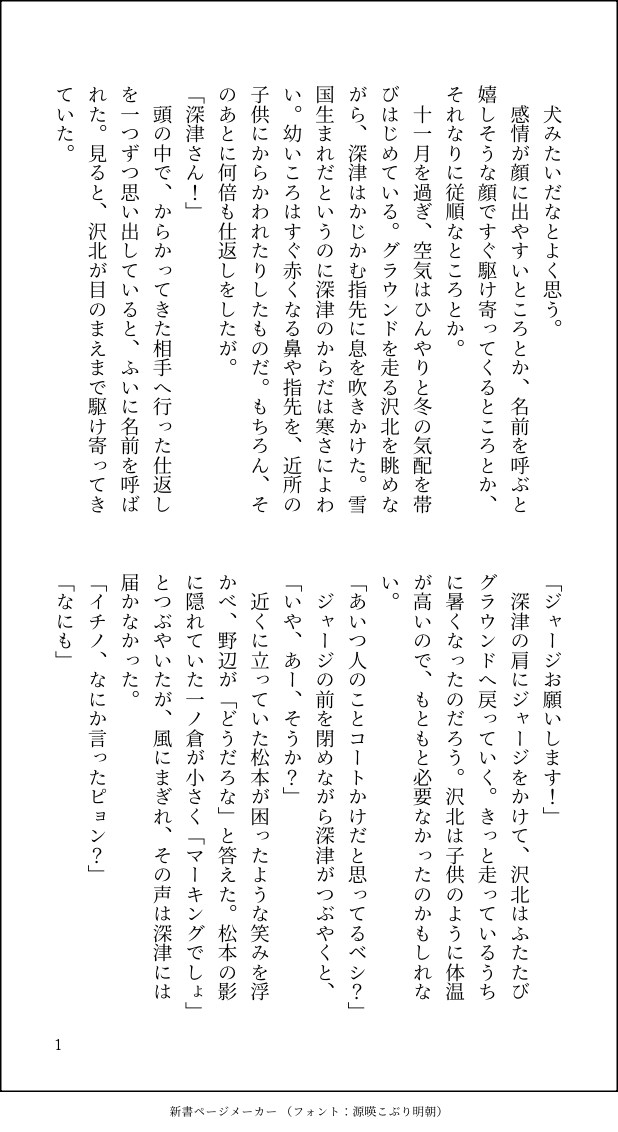 犬みたいだなとよく思う。
感情が顔に出やすいところとか、名前を呼ぶと
嬉しそうな顔ですぐ駆け寄ってくるところとか、
それなりに従順なところとか。
十一月を過ぎ、空気はひんやりと冬の気配を帯
びはじめている。グラウンドを走る沢北を眺めな
がら、深津はかじかむ指先に息を吹きかけた。雪
国生まれだというのに深津のからだは寒さによわ
い。幼いころはすぐ赤くなる鼻や指先を、近所の
子供にからかわれたりしたものだ。もちろん、そ
のあとに何倍も仕返しをしたが。
「深津さん！」
頭の中で、からかってきた相手へ行った仕返し
を一つずつ思い出していると、ふいに名前を呼ば
れた。見ると、沢北が目のまえまで駆け寄ってき
ていた。
「ジャージお願いします！」
深津の肩にジャージをかけて、沢北はふたたび
グラウンドへ戻っていく。きっと走っているうち
に暑くなったのだろう。沢北は子供のように体温
が高いので、もともと必要なかったのかもしれな
い。
「あいつ人のことコートかけだと思ってるベシ？」
ジャージの前を閉めながら深津がつぶやくと、
「いや、あー、そうか？」
近くに立っていた松本が困ったような笑みを浮
かべ、野辺が「どうだろな」と答えた。松本の影
に隠れていた一ノ倉が小さく「マーキングでしょ」
とつぶやいたが、風にまぎれ、その声は深津には
届かなかった。
「イチノ、なにか言ったピョン？」
「なにも」
1
新書ページメーカー（フォント：源暎こぶり明朝）